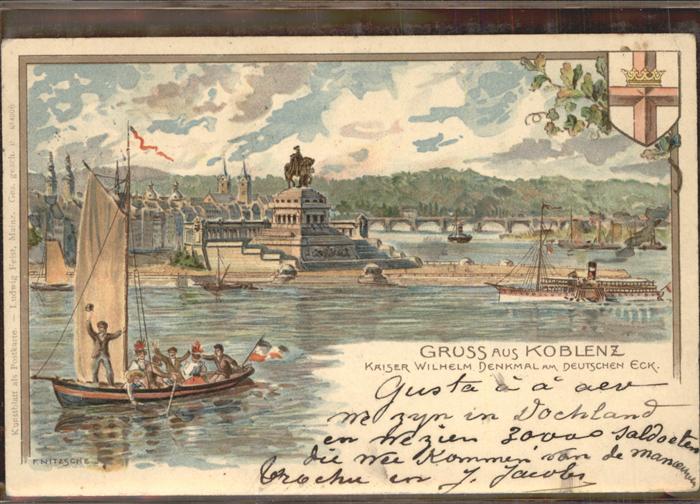 GRUSS AUS KOBLENZ
KAISER WILHELM DENKMAL AM DEUTSCHEN ECK.
Gusta à à aev
we zyn in Dochland
en we zien 30000 saldoeten
die wee Kommen van de manoeu
brochu en J. Jacobs
F. NITZSCHE
Kunstblatt als Postkarte. — Ludwig Feist, Mainz. Ges. gesch.